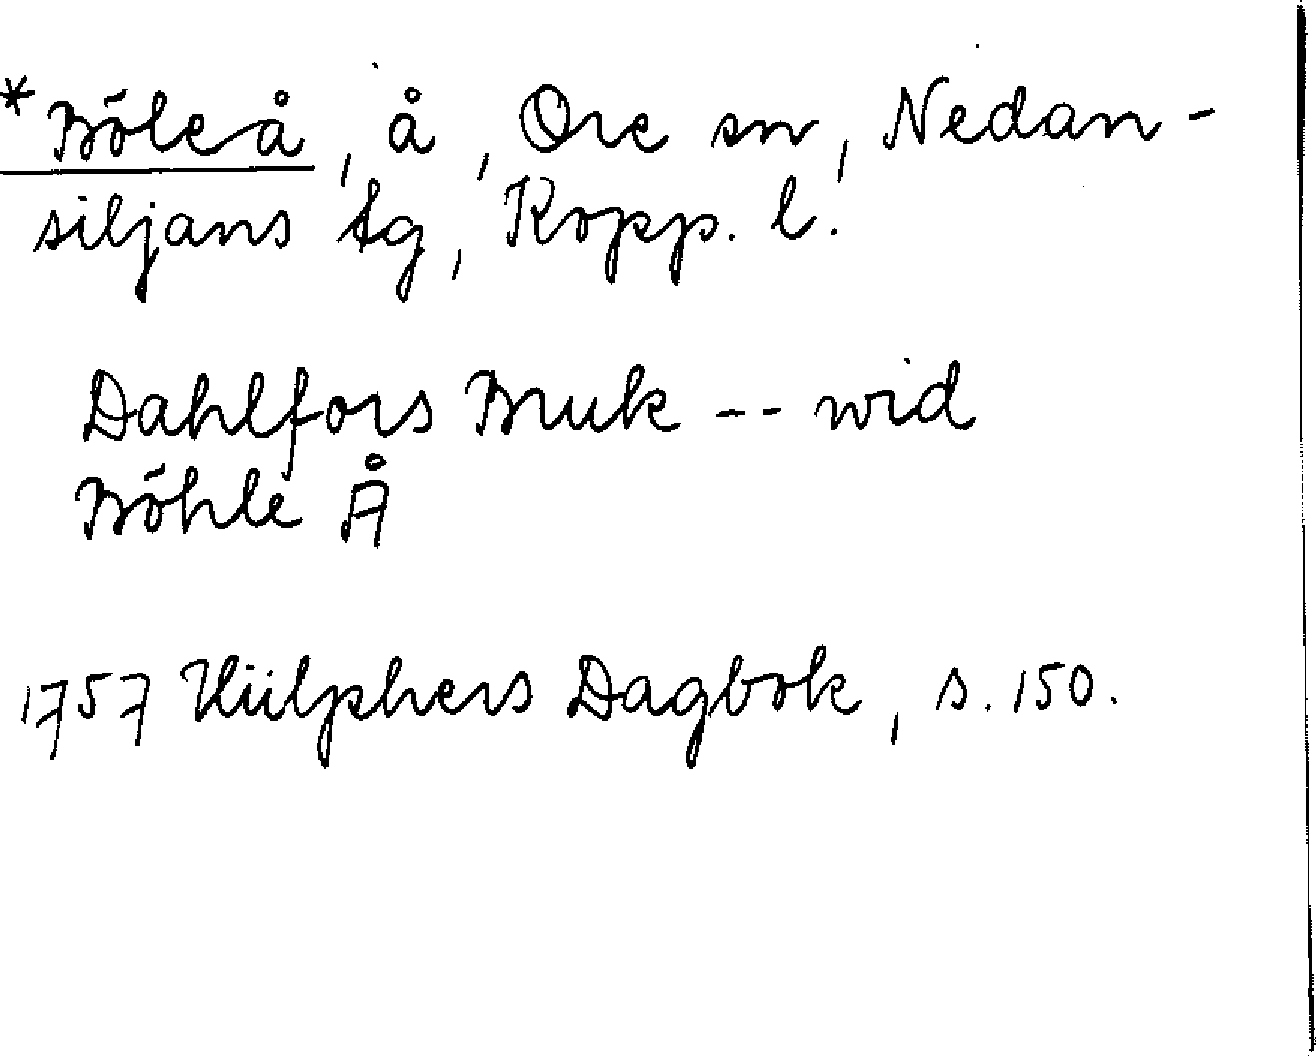 *Böleå, å, Ore sn, Nedan-
siljans tg, Kopp. l.
Dahlfors Bruk -- wid
Böhle Å
1757 Hülphers Dagbok, s. 150.